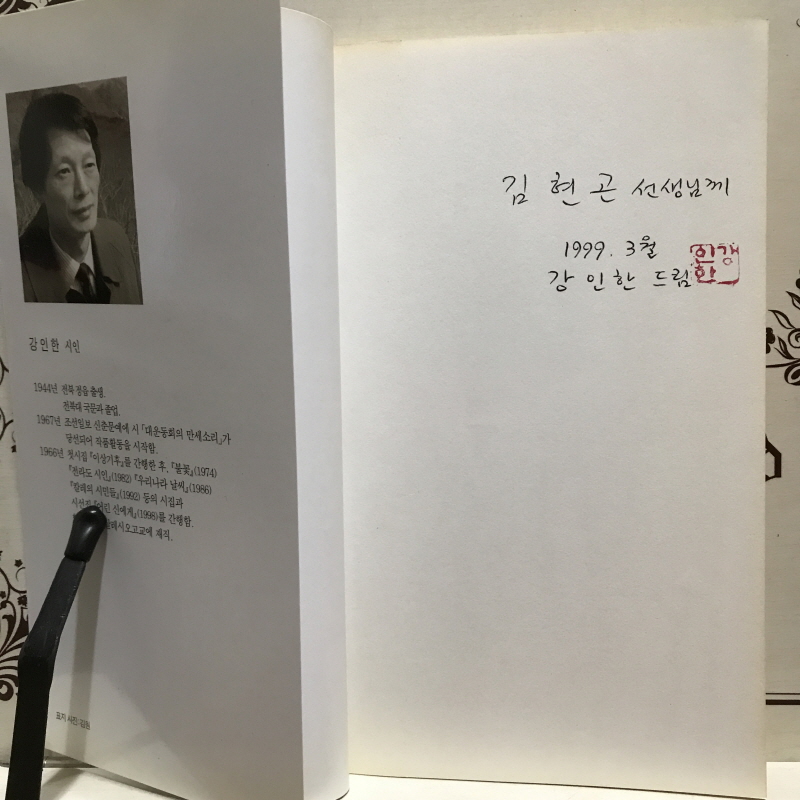 강인한 시인
1944년 전북 정읍 출생.
전북대 국문과 졸업.
1967년 조선일보 신춘문예에 시 「대운동회의 만세소리」가
당선되어 작품활동을 시작함.
1966년 첫시집 『이상기후』를 간행한 후, 『불꽃』(1974)
『전라도 시인』(1982) 『우리나라 날씨』(1986)
『칼레의 시민들』(1992) 등의 시집과
시선집 『어린 신에게』(1998)를 간행함.
살레시오고교에 재직.
표지 사진:김원
김 현 곤 선생님께
1999. 3월
강 인 한 드림
인강
한